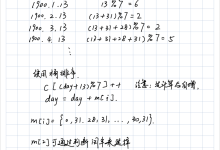 1900.1.13 13%7=6
1900.2.13 (13+31)%7=2
1900.3.13 (13+31+28)%7=2
1900.4.13 (13+31+28+31)%7=5
⋮
使用桶排序
C[(day+13)%7]++
day = day + m[i].
m[i]={0,31,28,31,...,30,31}.
m[2]可通过判断闰年来选择